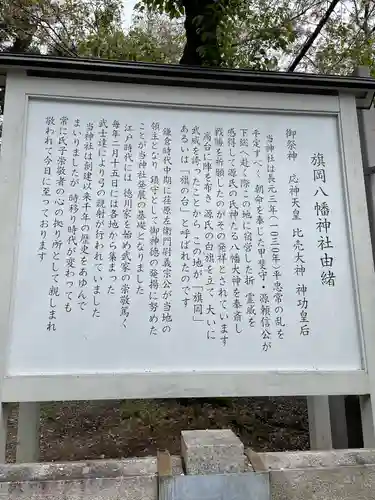 旗岡八幡神社由緒
御祭神　応神天皇　比売大神　神功皇后
当神社は長元三年(一〇三〇年)平忠常の乱を
平定すべく　朝命を奉じた甲斐守・源頼信公が
下総へ赴く際この地に宿営した折　霊威を
感得して源氏の氏神たる八幡大神を奉斎し
戦勝を祈願したのがその発祥とされています
高台に陣を布き　源氏の白旗を立て　大いに
武威を誇ったことから　この地が「旗岡」
あるいは「旗の台」と呼ばれたのです
鎌倉時代中期に荏原左衛門尉義宗公が当地の
領主となり　鎮守として御神徳の発揚に努めた
ことが当神社発展の基礎となりました
江戸時代には　徳川家を始め武家の崇敬篤く
毎年二月十五日には各地から集まった
武士達により弓の競射が行われていました
当神社は創建以来千年の歴史をあゆんで
まいりましたが　時移り時代が変わっても
常に氏子崇敬者の心の拠り所として親しまれ
敬われて今日に至っております